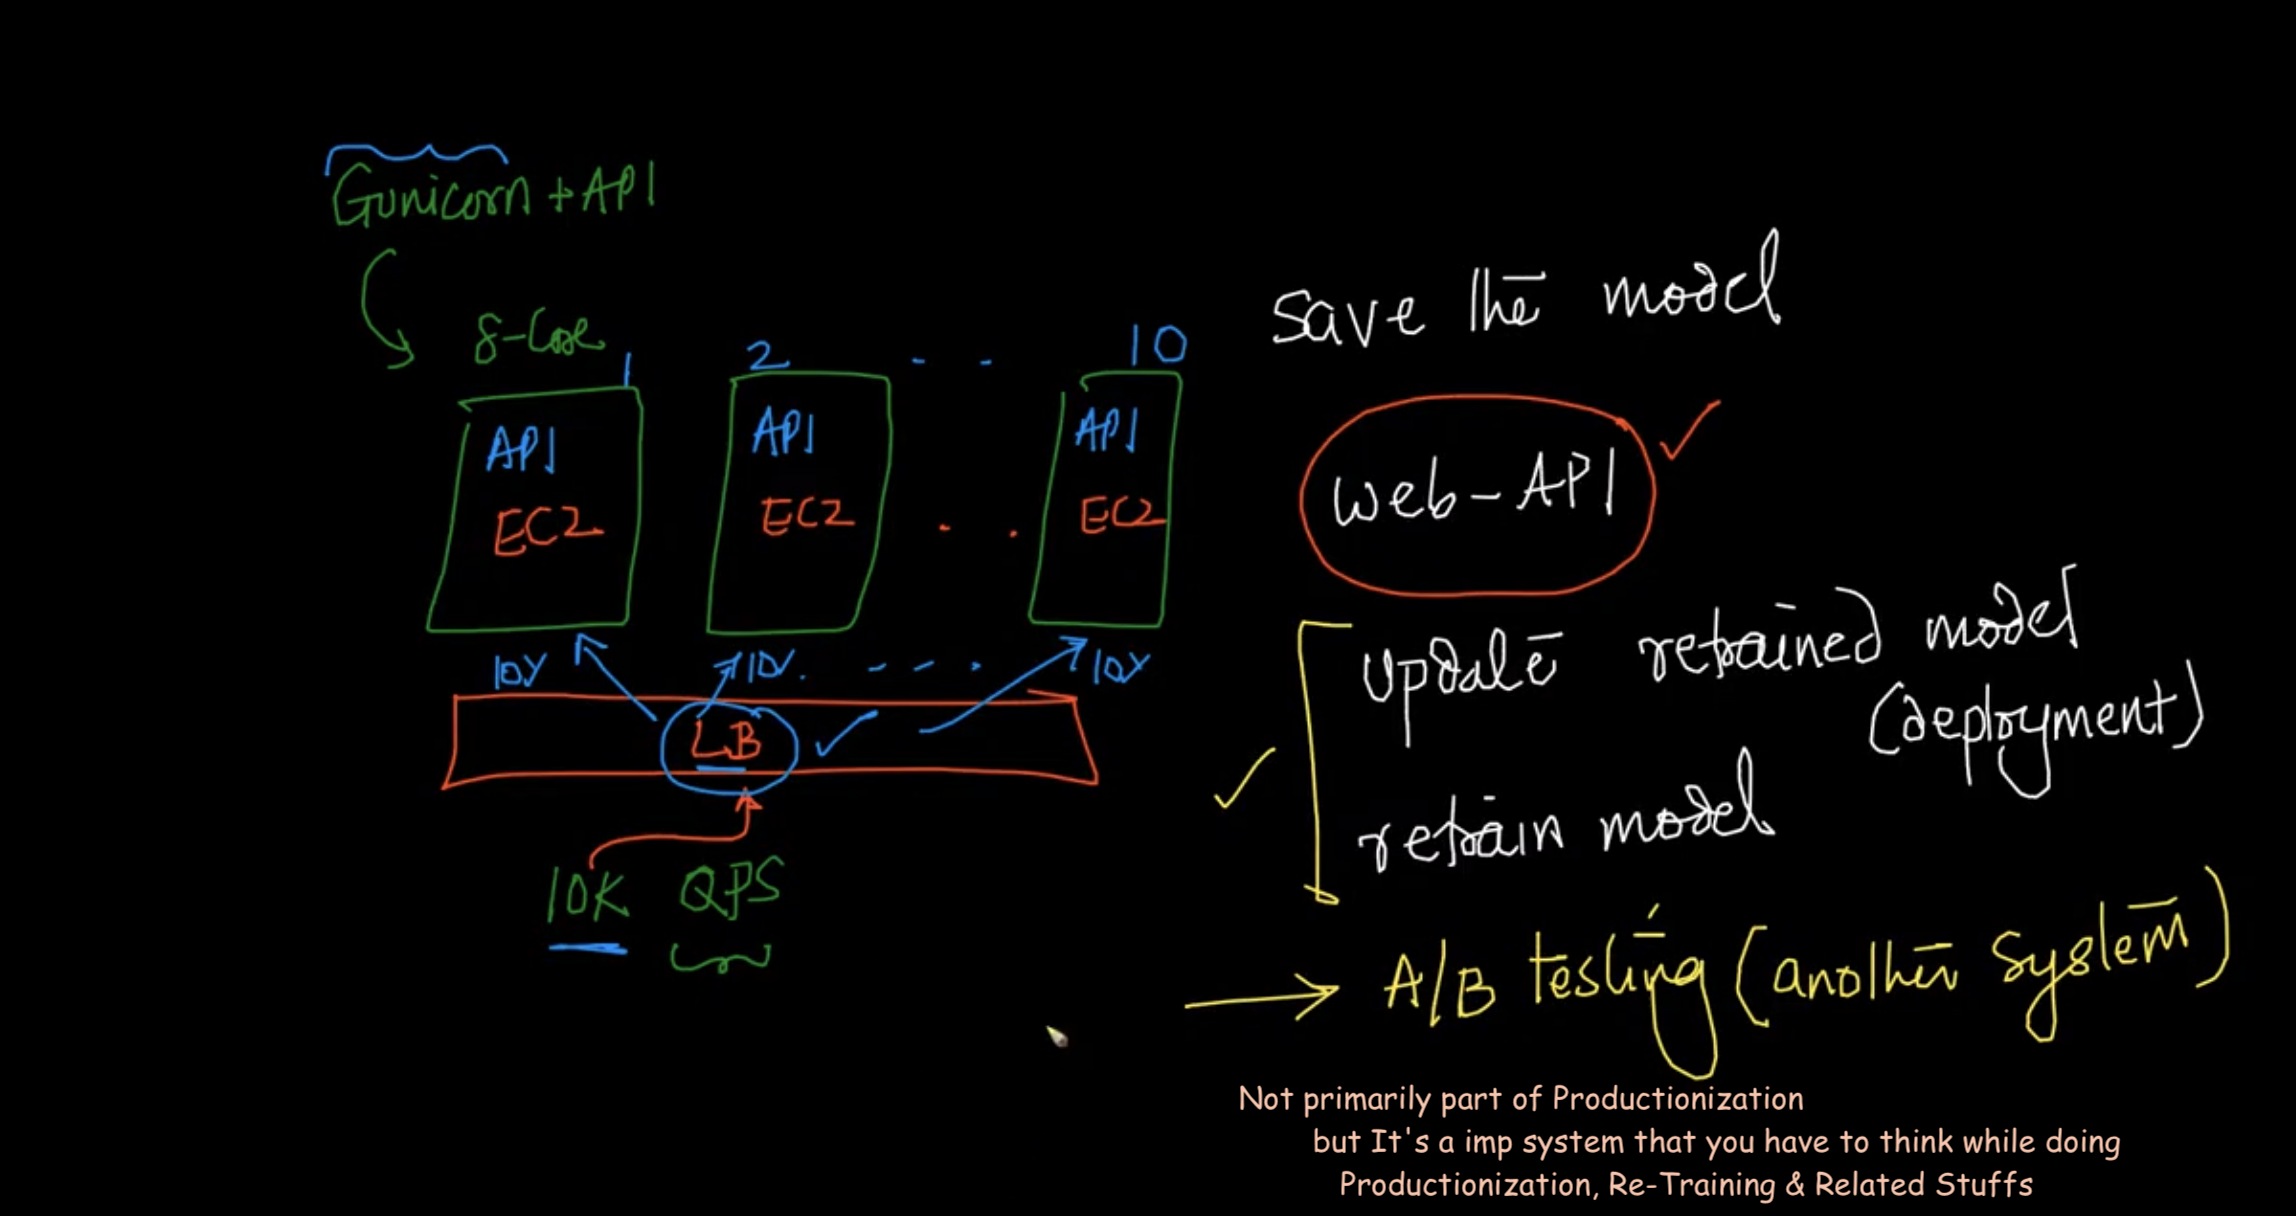 Gunicorn + API
8-Core
1 2 - - 10
API API API
EC2 EC2 . . EC2
10% 10%. - - . 10%
LB
10K QPS
Save the model
Web-API
Update retrained model
(deployment)
retrain model
A/B testing (another system)
Not primarily part of Productionization
but It's a imp system that you have to think while doing
Productionization, Re-Training & Related Stuffs